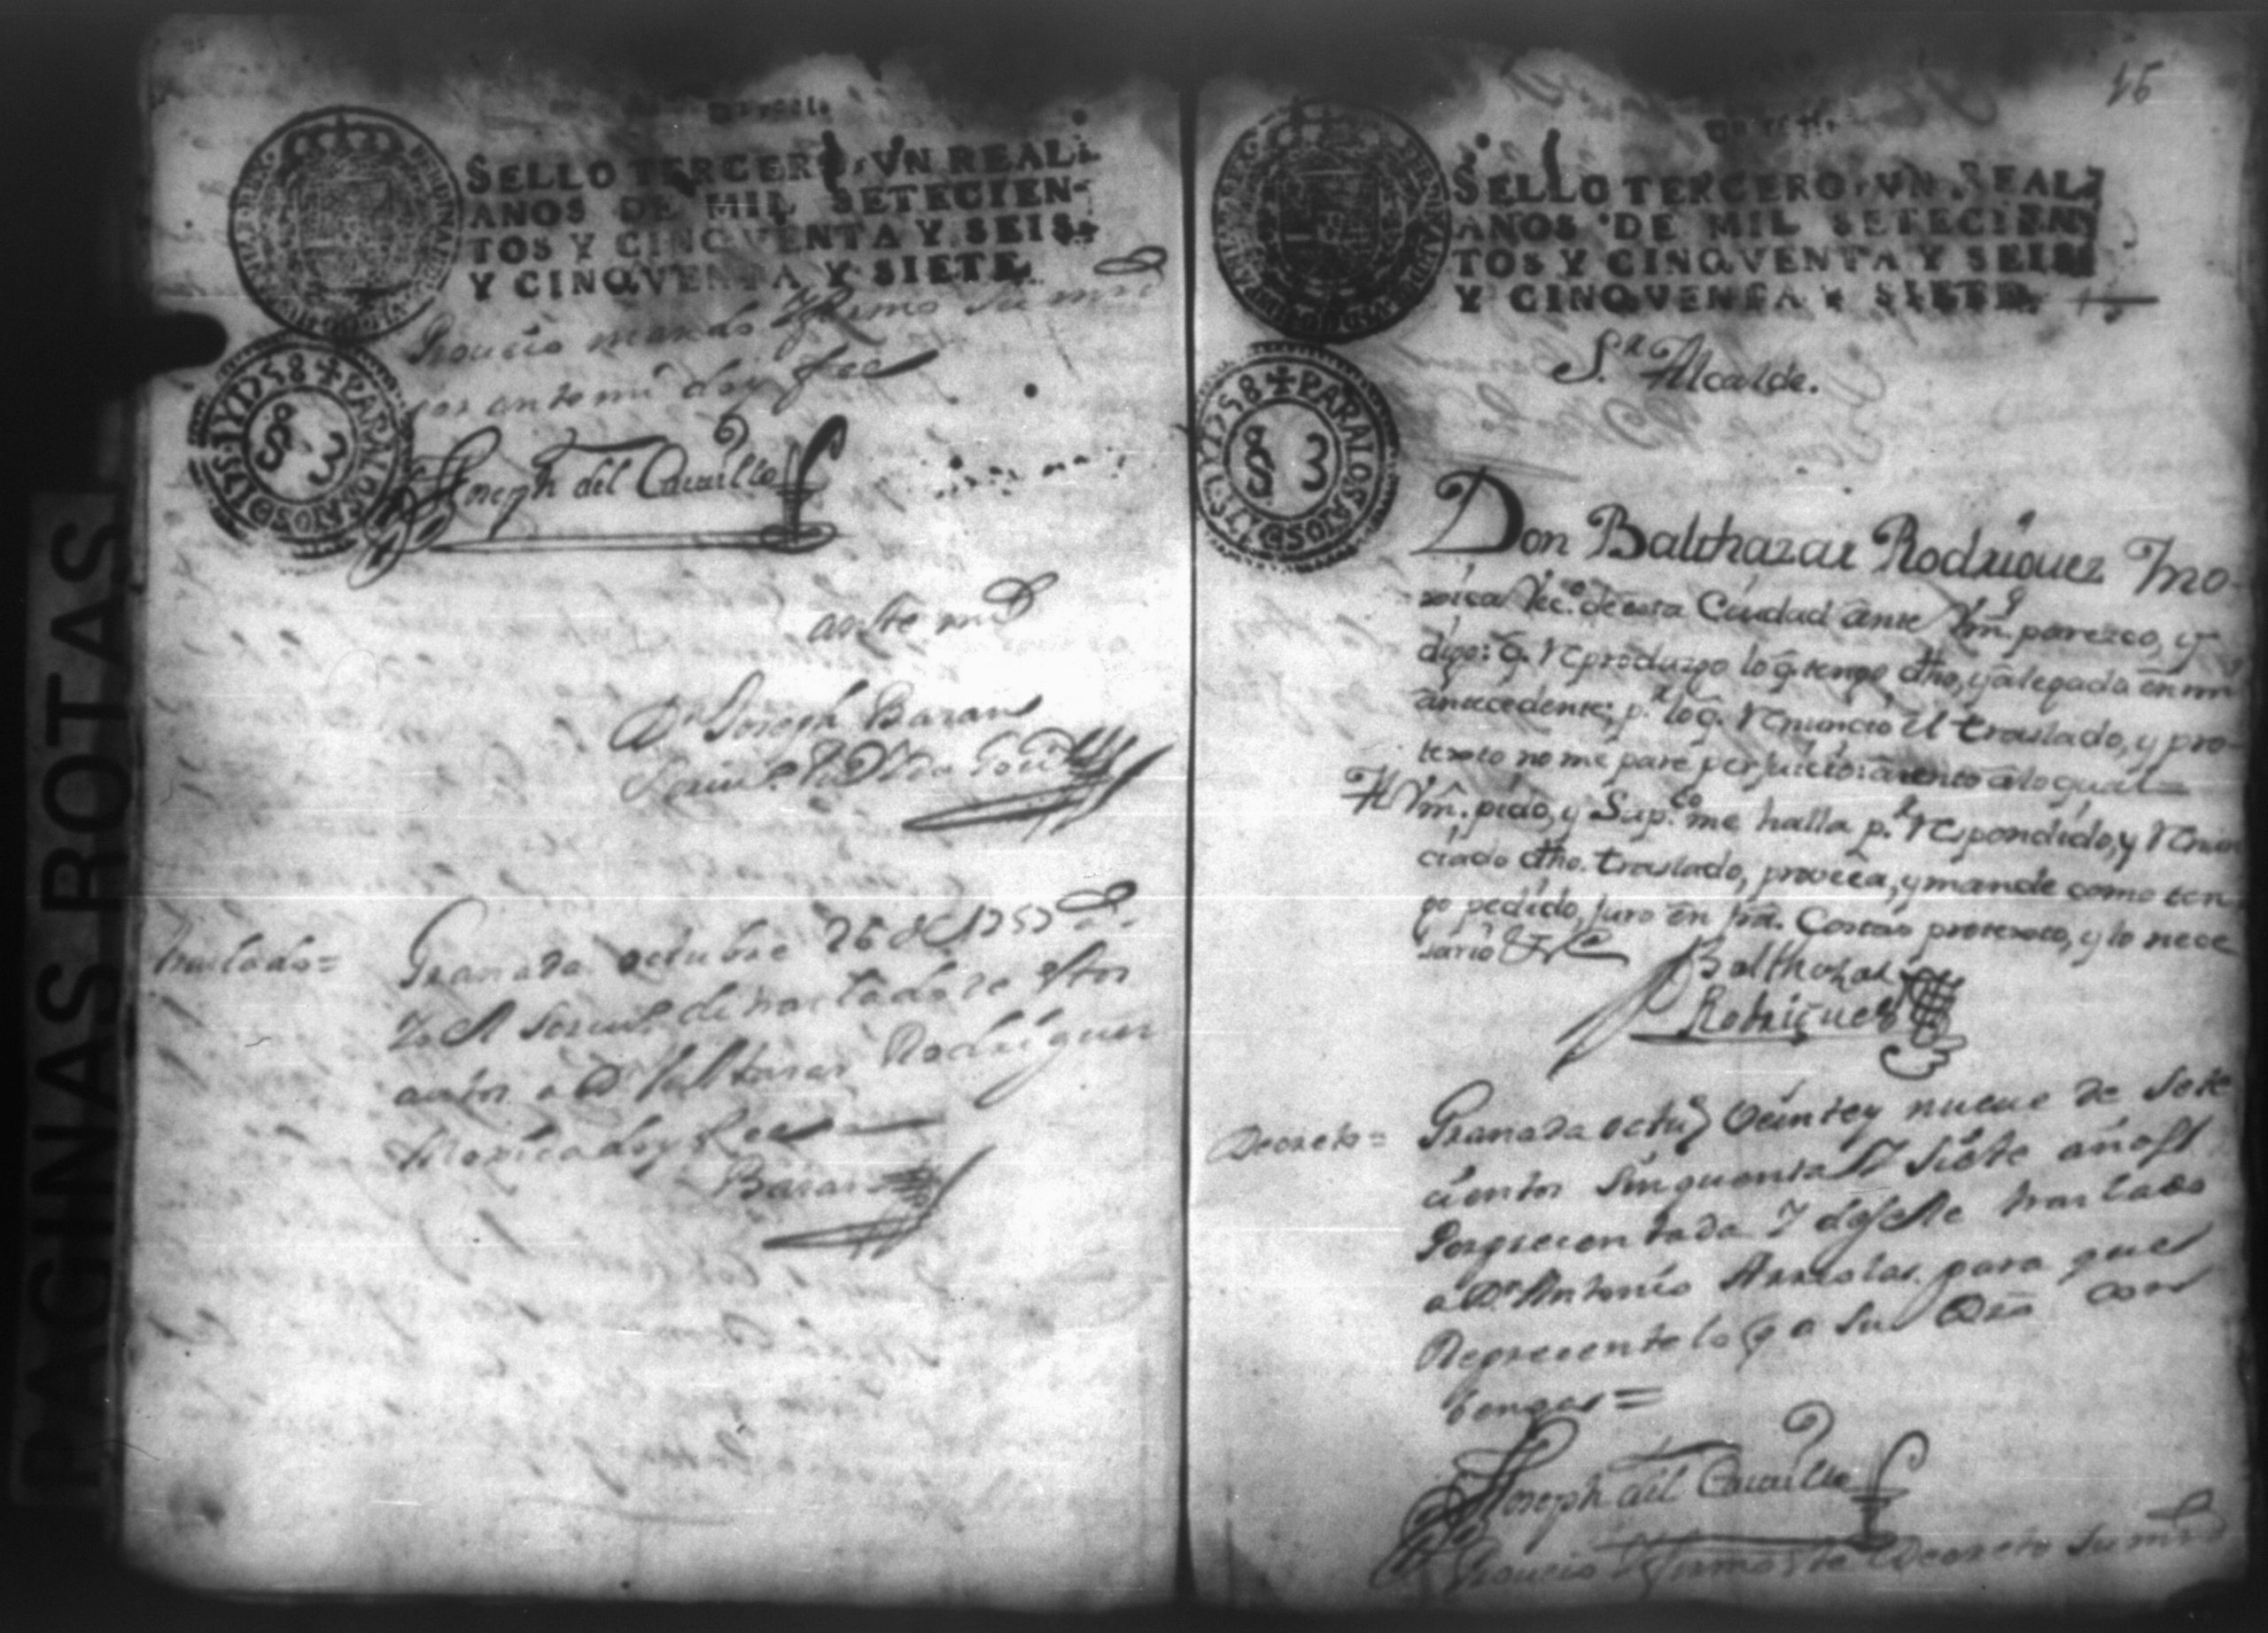 PAGINAS ROTAS
SELLO TERCERO, VN REAL
ANOS DE MIL SETECIEN-
TOS Y CINQVENTA Y SEIS
Y CINQVENTA Y SIETE.
✠ PARA LOS AÑOS D 175 Y 1758
S 3
Proueio mando Y firmo su md
por ante mi doy fee
Joseph del Castillo
ante mi
Dn Joseph Baran
Granada octubre 26 de 1757 as
traslado=
Yo el di traslado de estos
autos a Dn Valtasar Rodriguez
Moxica doy fee
Baran
SELLO TERCERO, VN REAL
ANOS DE MIL SETECIEN
TOS Y CINQVENTA Y SEIS
Y CINQVENTA Y SIETE.
✠ PARA LOS AÑOS D 175 Y 1758
S 3
Sr. Alcalde.
Don Balthazar Rodriguez Mo-
xica Veco. de esta Ciudad ante Vm. paresco, y
digo: q. reproduzgo lo q. tengo dho, y alegado en mi
antecedente; pr. lo q. renuncio el traslado, y pro-
texto no me pare perjuicio: atento a lo qual
A Vm. pido, y Supco. me halla pr. respondido, y renun
ciado dho. traslado, proveea, y mande como ten
go pedido, juro en fra. Costas protexto, y lo nece
sario &
Balthazar
Rodriguez
Decreto=
Granada octue veinte y nueue de sete
cientos sinquenta Y siete años
Por precentada Y desele traslado
a Dn Antonio Arriolas para que
Represente lo q a su Dro con
benga=
Joseph del Castillo
Proueio Y firmo este Decreto su md